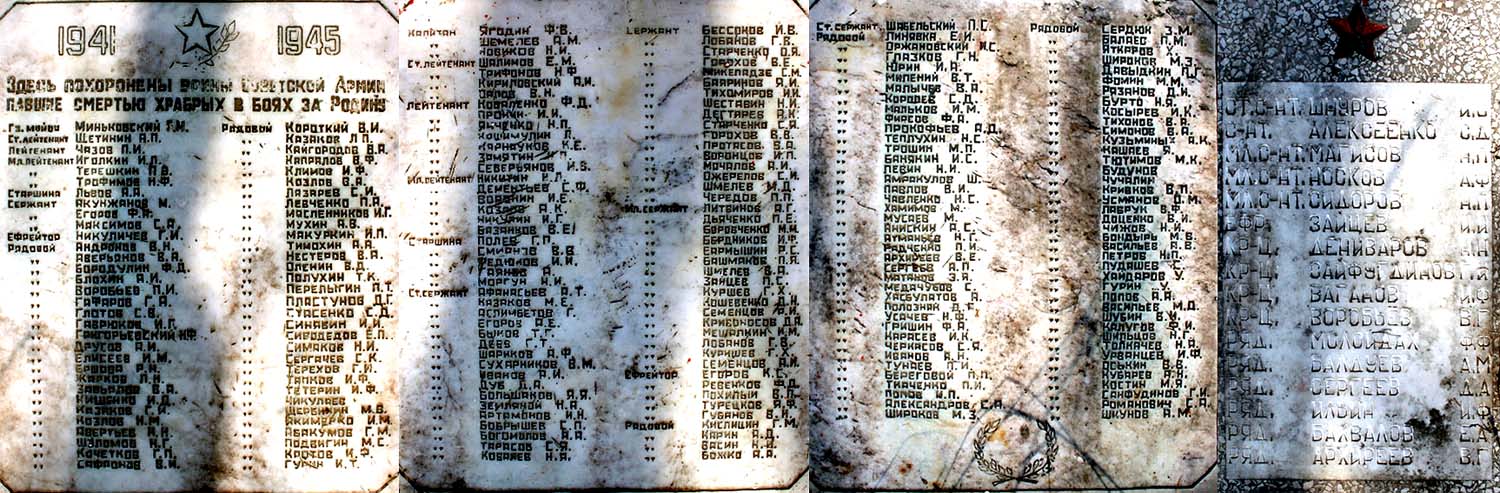 1941 1945
Здесь похоронены воины Советской Армии
павшие смертью храбрых в боях за Родину
Гв. майор Миньковский Г.М.
Ст. лейтенант Щетинин А.П.
Лейтенант Чазов П.И.
Мл. лейтенант Иголкин И.Д.
Терешкин П.В.
Трофимов Н.Ф.
Старшина Львов А.А.
Сержант Якунжанов М.
Егоров Ф.Я.
Максимов С.А.
Ефрейтор Никуличев Г.И.
Рядовой Андронов В.Н.
Аверьянов В.А.
Бородулин Ф.Д.
Блохин А.И.
Воробьев П.И.
Гафаров Г.А.
Глотов С.В.
Гаврюков И.Г.
Григорьевский И.Ф.
Другов А.И.
Елисеев И.М.
Ершова Р.Н.
Жарков Л.Н.
Завьялов В.А.
Кищенко И.Д.
Казаков Г.И.
Козлов И.М.
Авертьев И.Н.
Шэломов Н.Г.
Кочетков Г.П.
Сафронов В.И.
Рядовой Короткий В.И.
Казаков Л.П.
Кайгородов В.А.
Капралов В.Ф.
Климов И.Ф.
Козлов В.А.
Лазарев С.И.
Левченко П.А.
Масленников И.Г.
Мухин А.В.
Макуякин И.П.
Тимохин А.А.
Нестеров В.А.
Пленин В.Д.
Полухин Т.К.
Перелыгин П.Т.
Пластунов Д.Г.
Стасенко С.Д.
Синявин И.И.
Сиродедов Е.П.
Симаков Н.И.
Сергачев С.К.
Терехов Г.И.
Тяпков И.Ф.
Тетерин И.Ф.
Чикулаев
Щербинин М.В.
Якимерко И.М.
Абакумов Г.М.
Подвигин М.С.
Кочетов И.Ф.
Гурин И.Т.
Капитан Ягодин Ф.В.
Шемелев А.М.
Новиков Н.И.
Ст. лейтенант Шалимов Е.М.
Трифонов Н.Ф.
Кириловский А.И.
Ялов В.Н.
Лейтенант Коваленко Ф.Д.
Пронин И.И.
Яхненко Н.П.
Коцимулин Л.
Карнауков К.Е.
Замятин И.П.
Северьянов И.В.
Никитин И.Г.
Мл. лейтенант Дементьев С.Ф.
Воронин И.Е.
Козлов А.К.
Никурин И.Г.
Базанков В.Е.
Старшина Полев Г.П.
Смирнов В.В.
Редюков И.И.
Граянов А.
Моргун И.И.
Ст. сержант Афанасьев А.Т.
Казаков М.Е.
Аслимбетов Г.
Егоров А.Е.
Быков Т.Г.
Деев Г.Т.
Шариков А.Ф.
Сухарников В.М.
Иванов А.И.
Дуб Д.А.
Большаков А.Я.
Земляной Н.А.
Артамонов И.Н.
Бобрышев С.П.
Богомолов А.А.
Тарасов С.Я.
Ковалев Н.А.
Сержант Бессонов И.В.
Лобанов Г.Я.
Старченко О.Я.
Горохов В.Е.
Микеладзе С.М.
Бавринов Я.И.
Тихомиров И.И.
Шеставин Н.И.
Дегтярев А.К.
Старченко С.А.
Дорохов В.В.
Протасов В.А.
Воронцов И.П.
Мочалов А.И.
Ожерелов С.И.
Шмелев М.Д.
Чередов П.П.
Мл. сержант Литвинов Д.Г.
Дьяченко П.Е.
Боровченко М.М.
Бердников И.Ф.
Барнышин В.П.
Башмаков П.Я.
Шмелев В.А.
Зайцев П.С.
Куршев Г.Х.
Кошевенко Д.Н.
Семенцов Ф.И.
Кривоносов Д.А.
Мешалкин И.Г.
Лобанов Г.В.
Куришев Г.
Семенцов А.И.
Ефрейтор Егоров К.С.
Ревенков Ф.Д.
Похилый В.П.
Турецков Я.В.
Губанов В.И.
Рядовой Кислицин Г.М.
Карин А.Д.
Васин Н.А.
Божко А.А.
Ст. сержант Шабельский П.С.
Рядовой Линавка Е.И.
Оржановский И.С.
Глазков Г.Н.
Юрин И.А.
Милений В.Т.
Малычев В.А.
Коробев С.Д.
Мальков И.М.
Фирсов Ф.А.
Прокофьев А.Д.
Теплухин Н.С.
Трошин М.П.
Банякин И.С.
Левин Н.И.
Амракулов Ш.
Павлов В.И.
Чавленко Н.С.
Хамимов М.
Мусаев М.
Анискин А.С.
Атманьев Н.Г.
Радченко Н.И.
Архиреев В.Е.
Сергеев А.П.
Матанов З.А.
Медачубов С.
Хасбулатов А.
Полозная Д.Г.
Усачев Н.Ф.
Гришин Ф.А.
Карасев И.К.
Черкасов С.А.
Иванов А.Н.
Тунаев И.Г.
Береговой П.П.
Ткаченко П.И.
Попов И.П.
Александров С.А.
Широков И.З.
Рядовой Сердюк З.М.
Валаев П.М.
Яткаров Х.
Широков М.З.
Давыдкин П.Г.
Фомин М.М.
Рязанов Д.И.
Бурто Н.Я.
Косырев И.К.
Тихонов В.А.
Симонов В.А.
Кузьминых А.К.
Кашаев Я.
Тютимов М.К.
Будунов
Чучалин
Кривков В.П.
Усманов О.М.
Лаврук В.Ф.
Доценко В.И.
Чижов Н.И.
Бондырь М.В.
Васильев А.В.
Петров Н.П.
Лудяшев С.Г.
Хайдаров У.
Гурин У.
Попов А.А.
Васильев М.Д.
Шубин В.У.
Калугов Ф.И.
Шильцов Н.Г.
Толкачев Н.А.
Урванцев И.Ф.
Оськин В.В.
Кубарев А.Я.
Костин М.Я.
Санфудинов Г.И.
Романович С.А.
Шкунов А.М.
СТ. С-АНТ. ШНЯРОВ И.С
С-АТ. АЛЕКСЕЕНКО С.Д
МЛ. С-АНТ. МАГИСОВ А.П
МЛ. С-АТ. НОСКОВ А.Ф
МЛ. С-АНТ. СИДОРОВ А.П
ЕФР. ЗАЙЦЕВ И.И
КР-Ц. ДЕНИВАРОВ А.Н
КР-Ц. САЙФУГДИНОВ Г.Я
КР-Ц. ВАГАНОВ И.Ф
КР-Ц. ВОРОБЬЕВ В.Г
РЯД. МОЛОЙДАХ Ф.Ф
РЯД. ВАЛДУЕВ А.М
РЯД. СЕРГЕЕВ Д.А
РЯД. ИЛЬИН И.Ф
РЯД. БАХВАЛОВ Е.А
РЯД. АРХИРЕЕВ В.Г